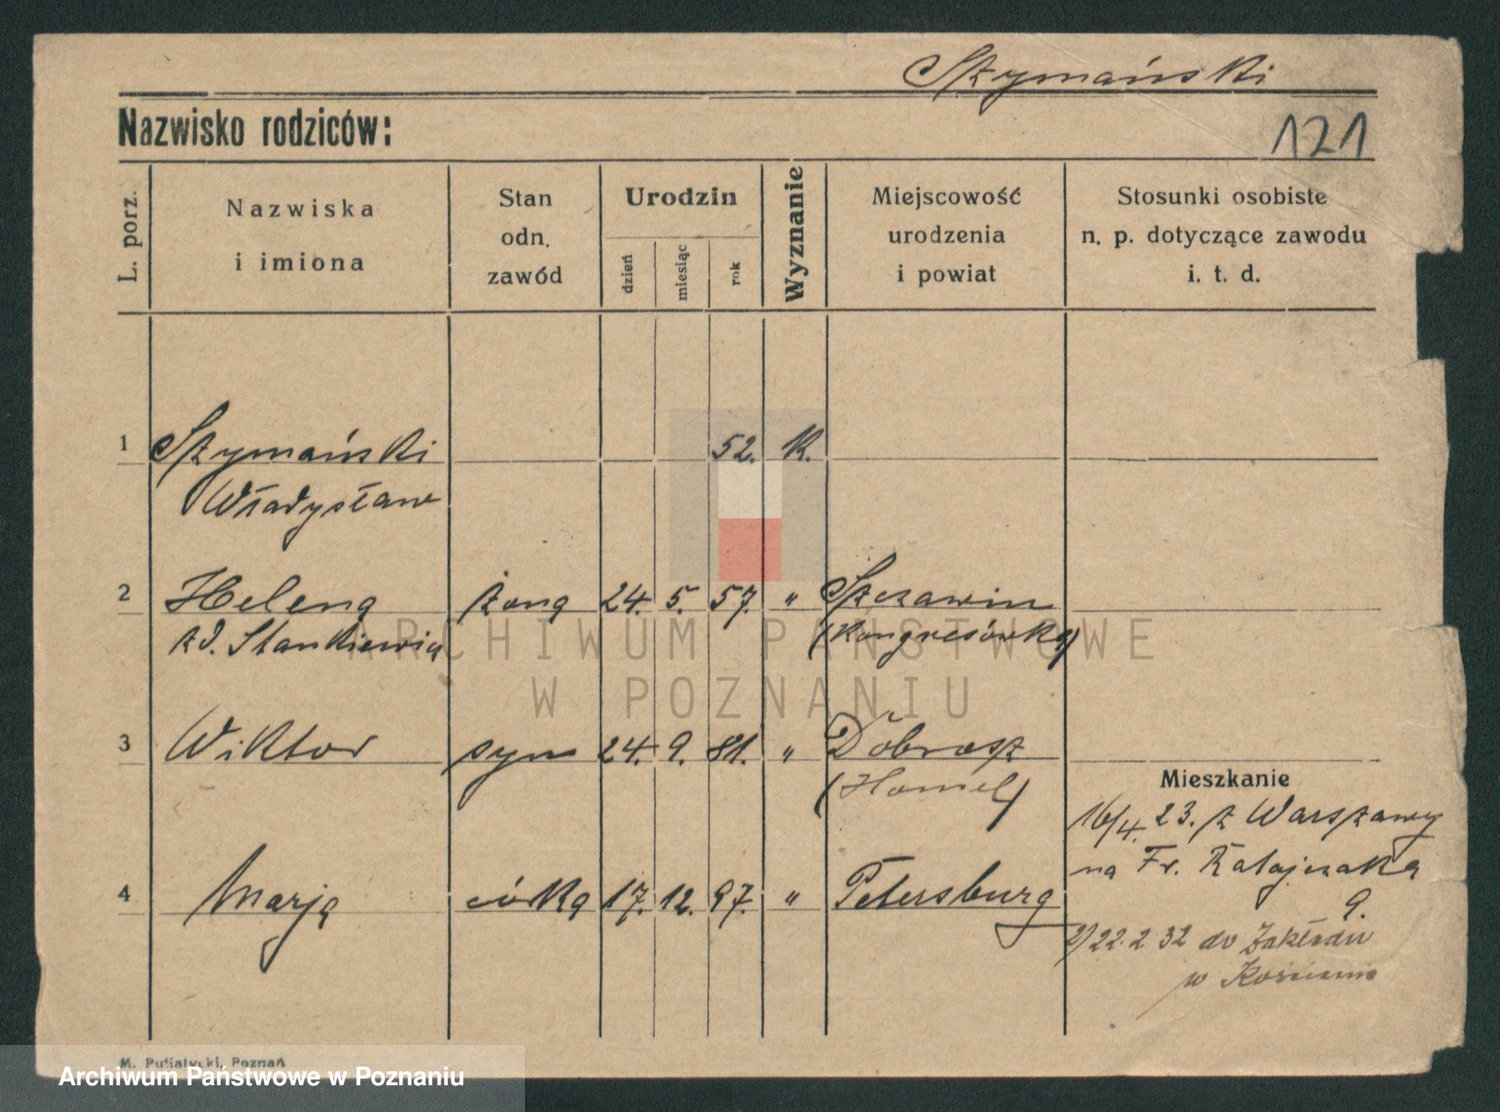 Szymański
Nazwisko rodziców:
121
L. porz.
Nazwiska
i imiona
Stan
odn.
zawód
Urodzin
dzień
miesiąc
rok
Wyznanie
Miejscowość
urodzenia
i powiat
Stosunki osobiste
n. p. dotyczące zawodu
i. t. d.
1 Szymański 52. K.
Władysław
2 Helena żona 24. 5. 57. " Szczawin
z d. Stankiewicz (Kongresówka)
3 Wiktor syn 24. 9. 81. " Dobrosz
(Homel)
Mieszkanie
16/4. 23. z Warszawy
na Fr. Ratajczaka
9.
4 Marja córka 17. 12. 97. " Petersburg
22.2 32 do Zakładu
w Kościanie
ARCHIWUM PAŃSTWOWE
W POZNANIU
M. Putiatycki, Poznań
Archiwum Państwowe w Poznaniu